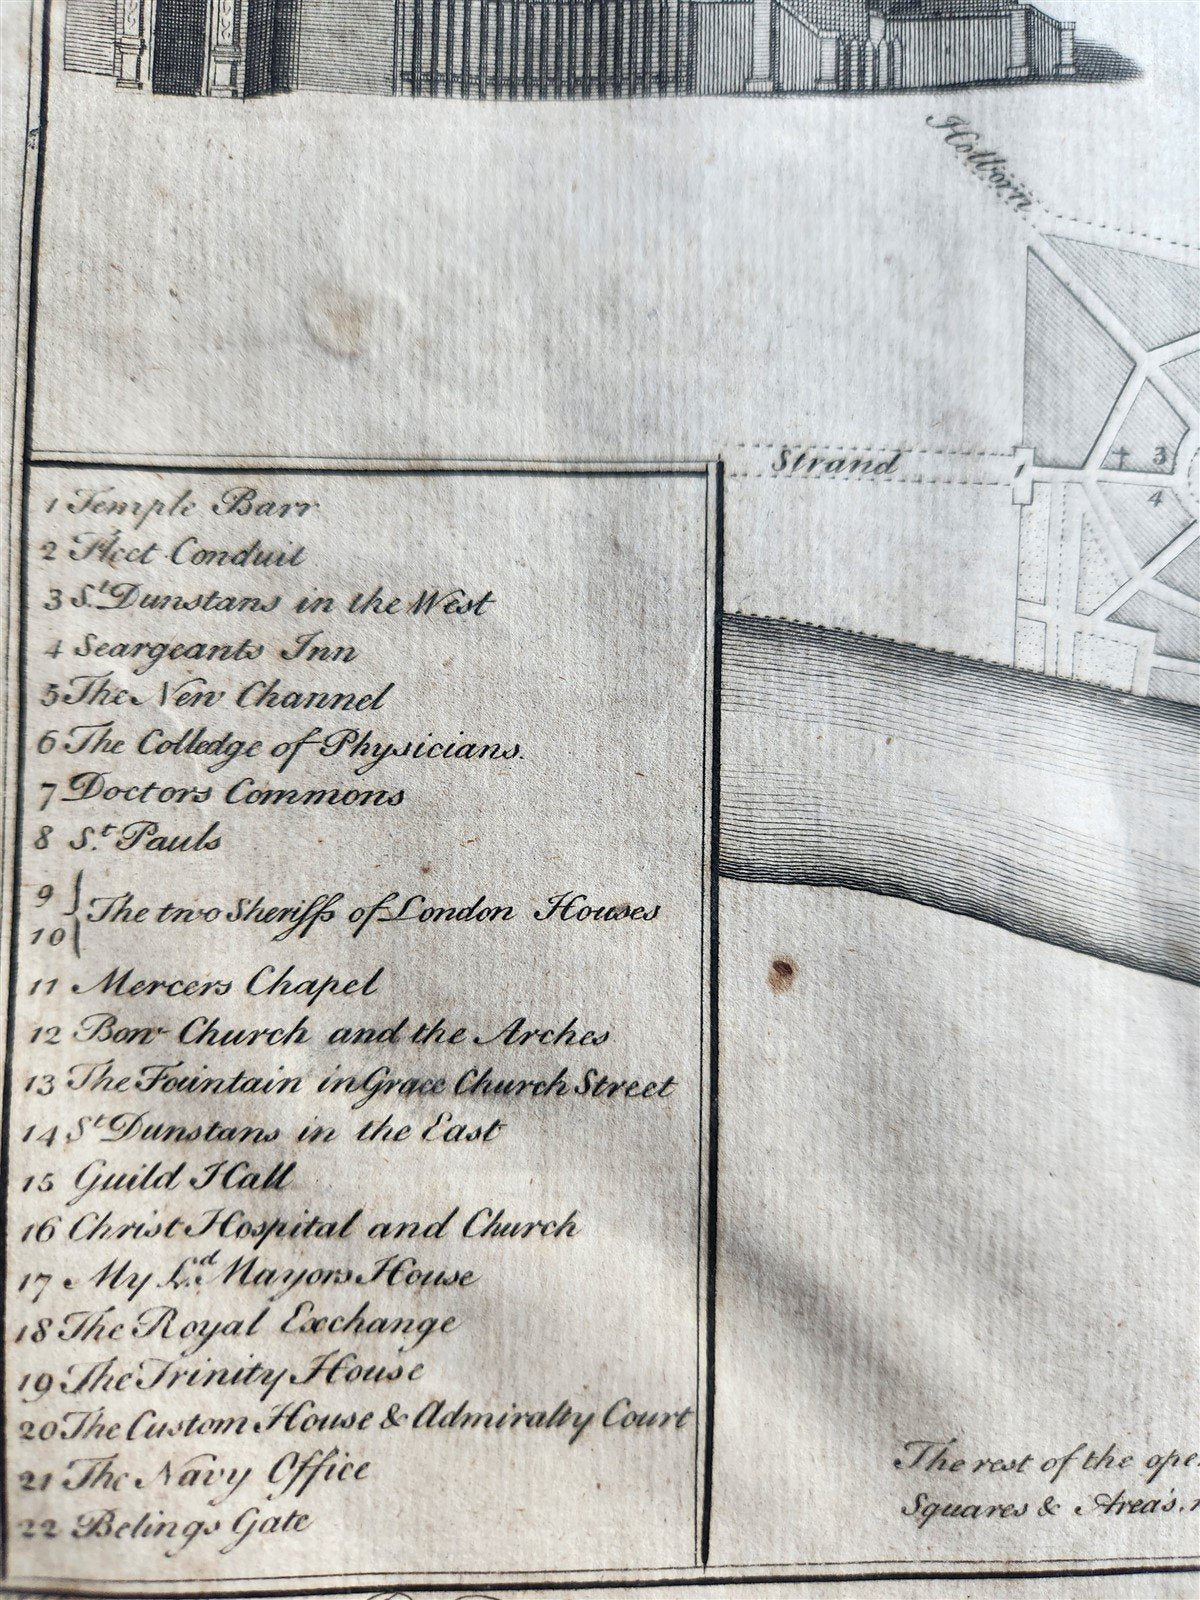 Holborn
Strand
1
3
4
1 Temple Barr
2 Fleet Conduit
3 St. Dunstans in the West
4 Seargeants Inn
5 The New Channel
6 The Colledge of Physicians.
7 Doctors Commons
8 St. Pauls
9
10 } The two Sheriffs of London Houses
11 Mercers Chapel
12 Bow Church and the Arches
13 The Fountain in Grace Church Street
14 St Dunstans in the East
15 Guild Hall
16 Christ Hospital and Church
17 My Ld. Mayors House
18 The Royal Exchange
19 The Trinity House
20 The Custom House & Admiralty Court
21 The Navy Office
22 Belings Gate
The rest of the ope
Squares & Area's.